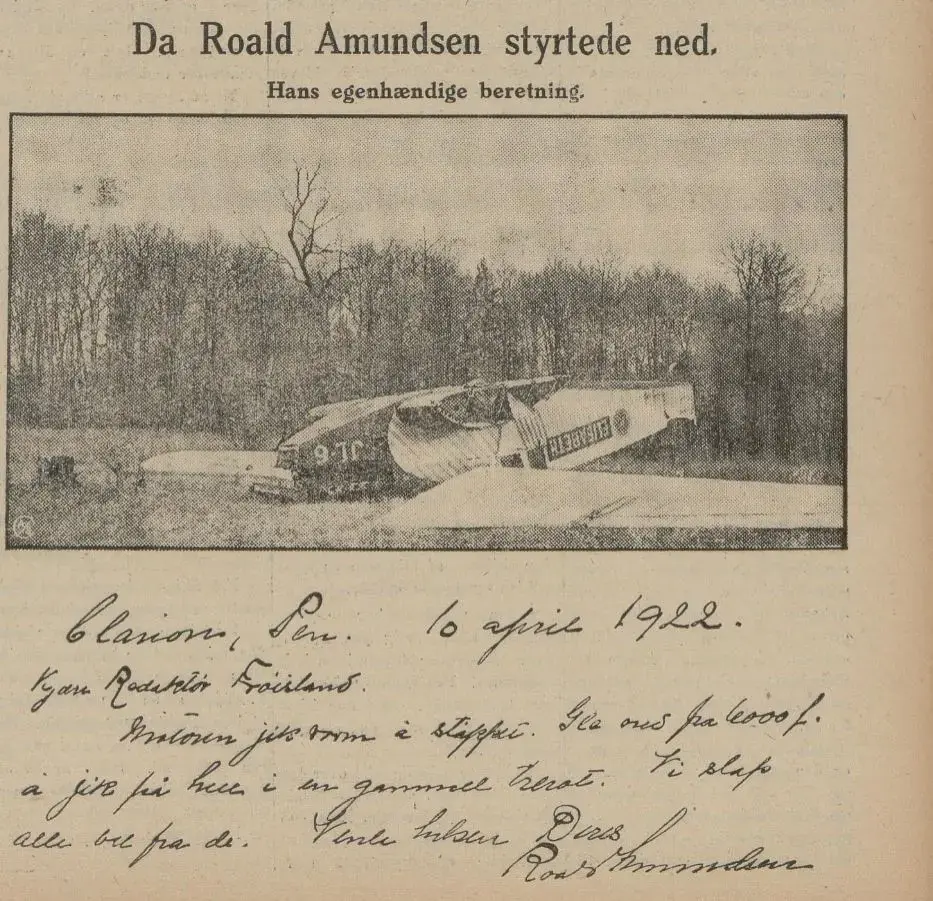 Da Roald Amundsen styrtede ned.
Hans egenhændige beretning.
JL-6
ELIEABETH
Clarion, Pen. 10 april 1922.
Kjære Redaktör Fröisland.
Motoren jik varm å stoppet. Gle ned fra 6000 f.
å jik på hue i en gammel trerot. Vi slap
alle vel fra de. Venli hilsen Deres
Roald Amundsen